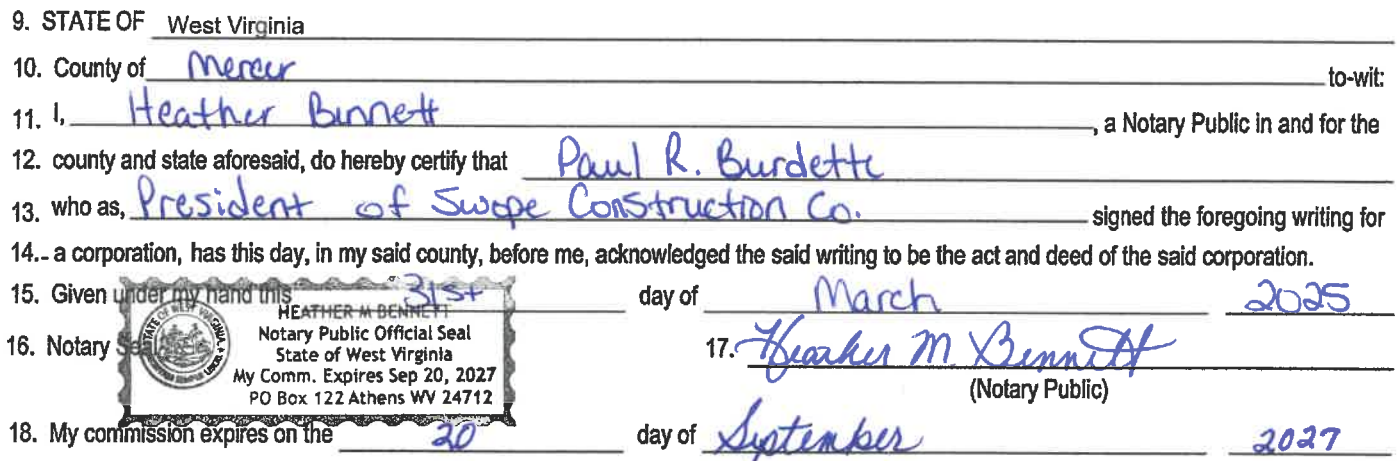 9. STATE OF West Virginia
10. County of Mercer to-wit:
11. I, Heather Bennett, a Notary Public in and for the
12. county and state aforesaid, do hereby certify that Paul R. Burdette
13. who as, President of Swope Construction Co. signed the foregoing writing for
14. a corporation, has this day, in my said county, before me, acknowledged the said writing to be the act and deed of the said corporation.
15. Given under my hand this 31st day of March 2025
16. Notary Seal
HEATHER M BENNETT
Notary Public Official Seal
State of West Virginia
My Comm. Expires Sep 20, 2027
PO Box 122 Athens WV 24712
17. Heather M. Bennett
(Notary Public)
18. My commission expires on the 20 day of September 2027